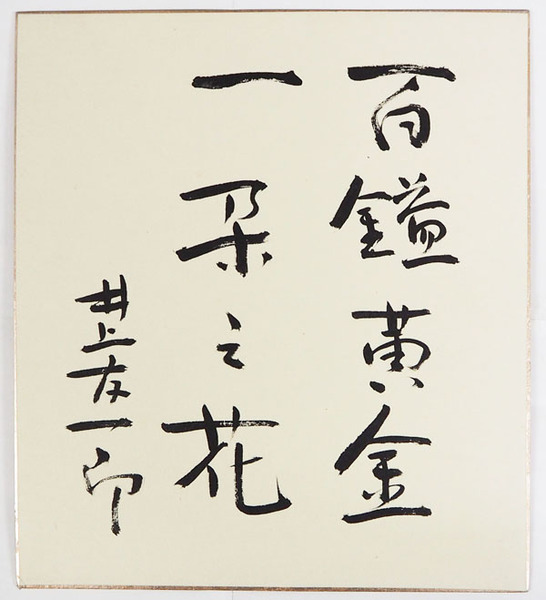 百鎰黄金
一朶之花
井上友一印